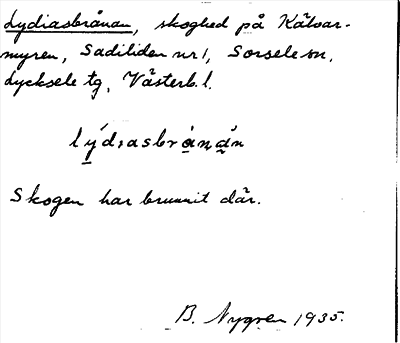 Lydiasbrånan, skoghed på Kätvar-
myren, Sadiliden nr 1, Sorsele sn,
Lycksele tg, Västerb. l.
lýdıasbrånąn
Skogen har brunnit där.
B. Nygren 1935.